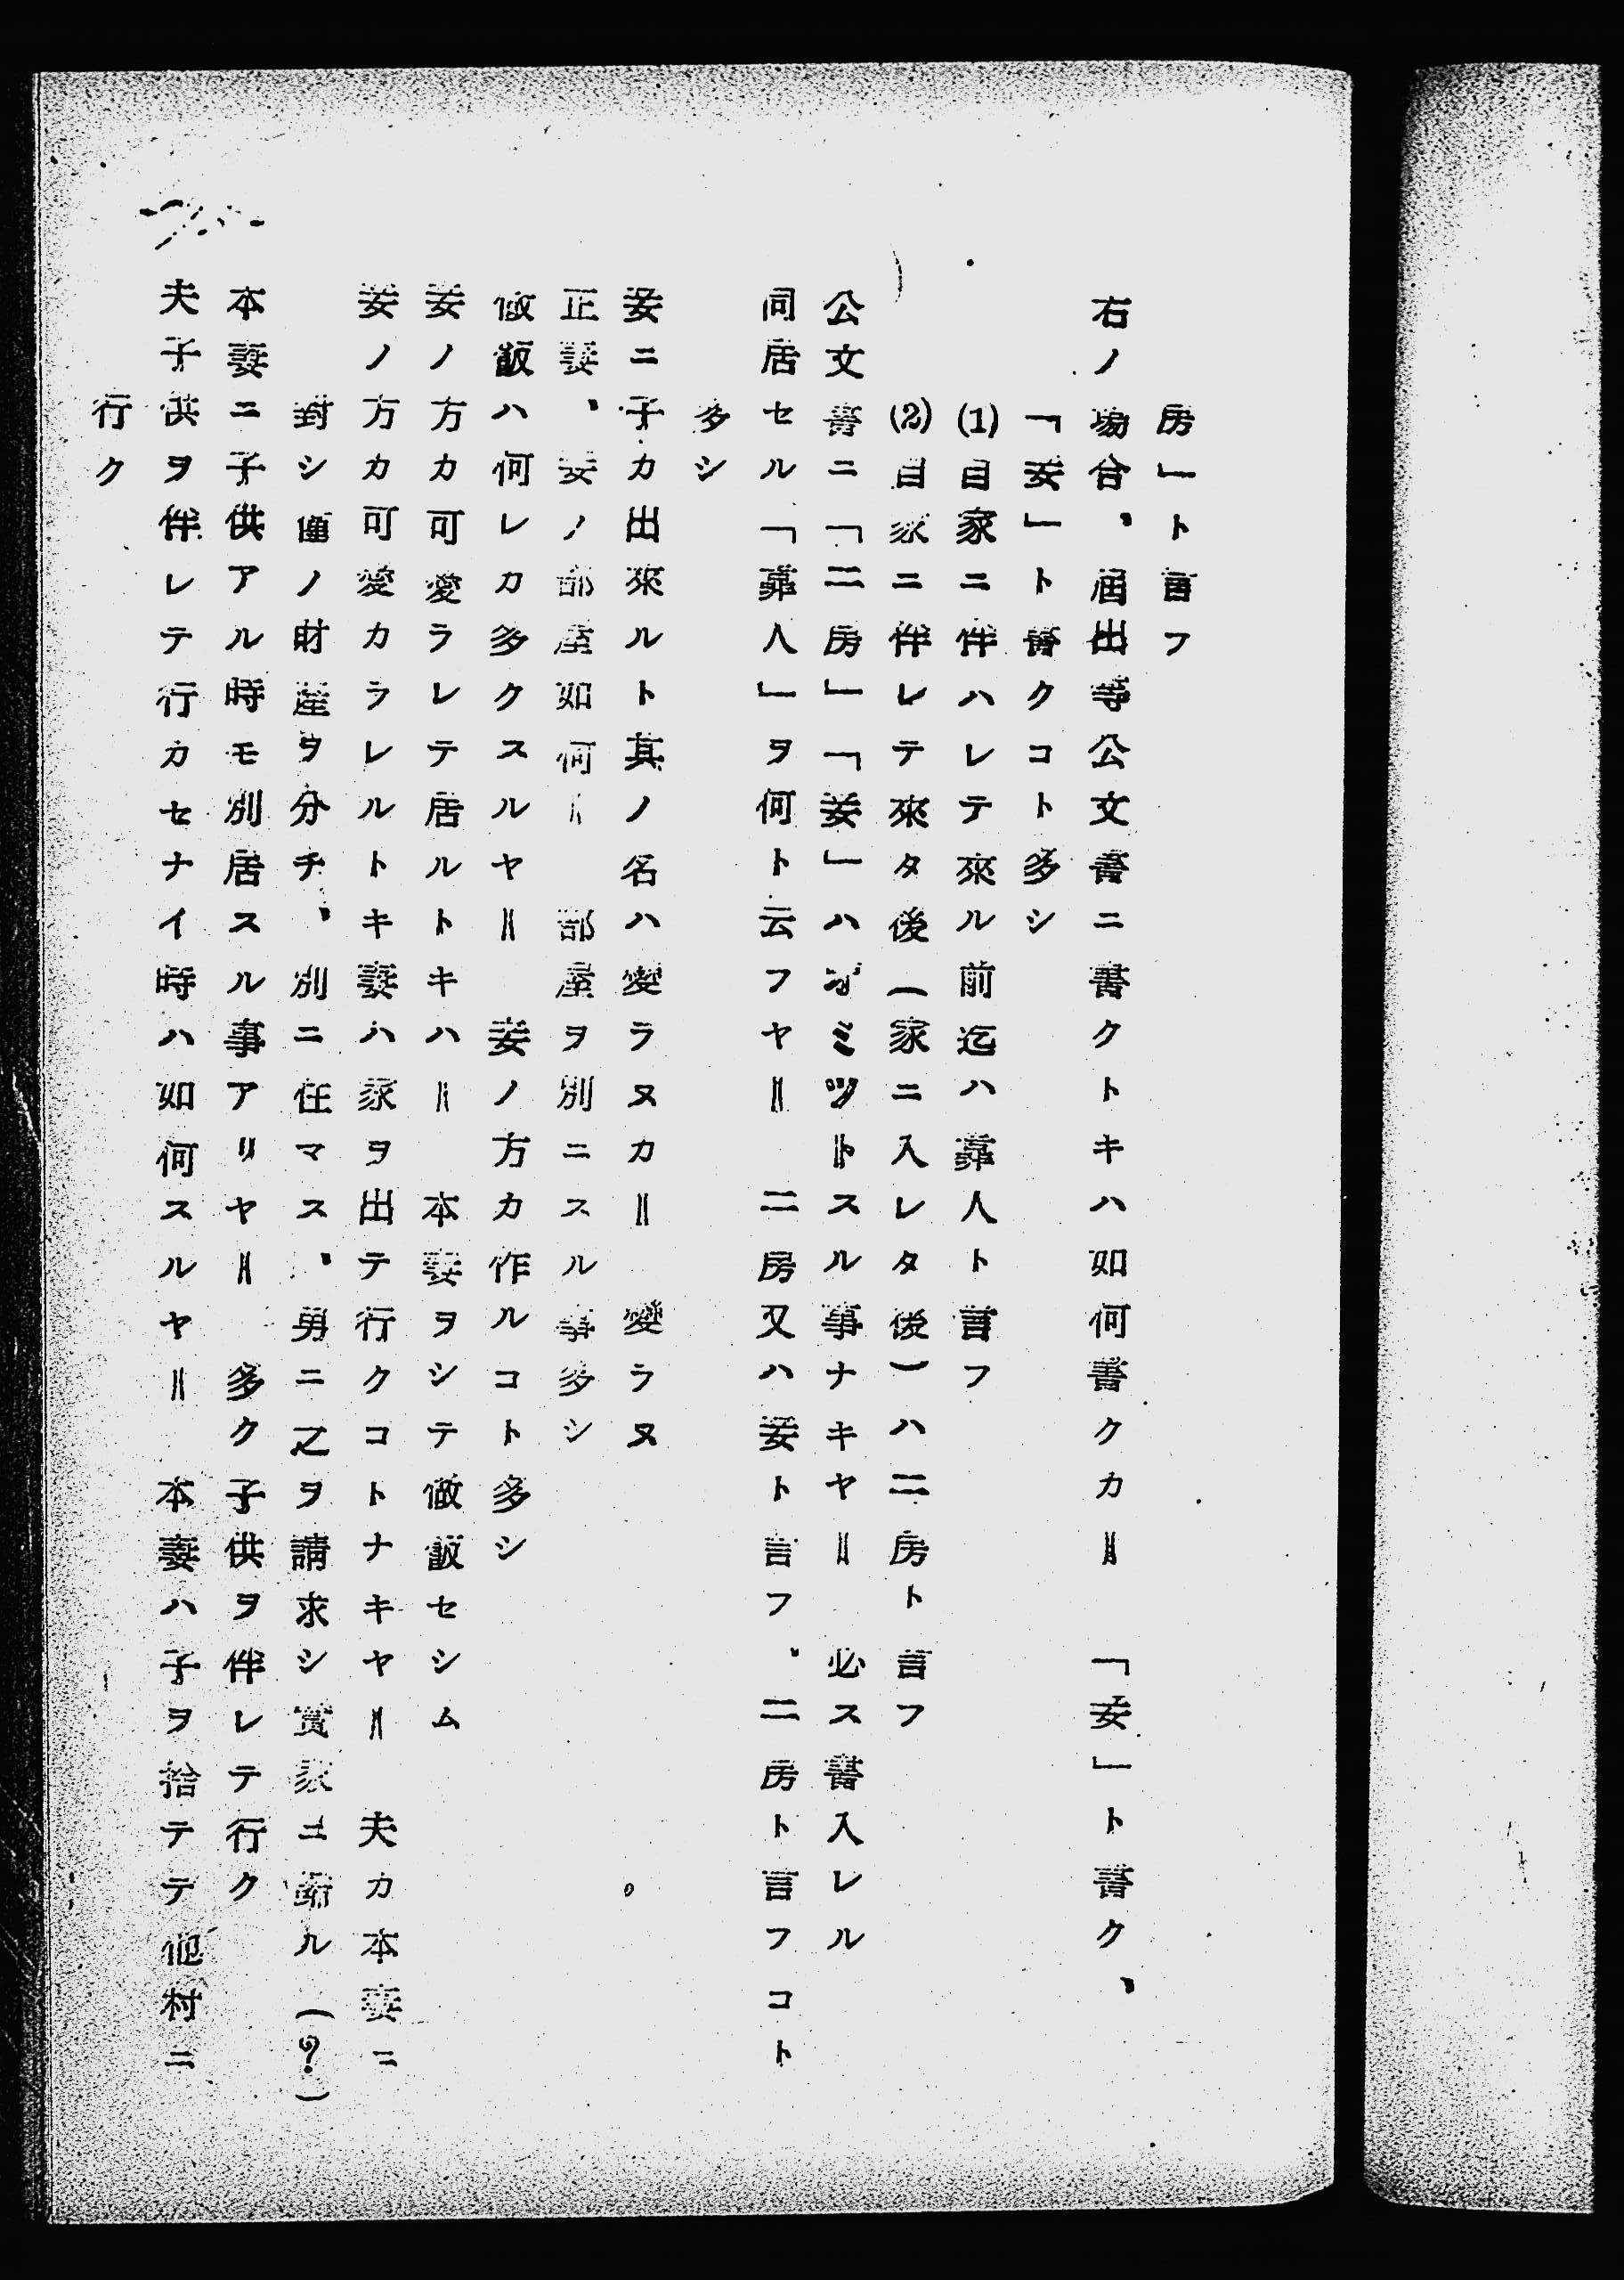 房」ト言フ
右ノ場合、屆出等公文書ニ書クトキハ如何書クカ＝　「妾」ト書ク、
「妾」ト書クコト多シ
(1)自家ニ伴ハレテ來ル前迄ハ葬人ト言フ
(2)自家ニ伴レテ來タ後(家ニ入レタ後)ハ二房ト言フ
公文書ニ「二房」「妾」ハオミツトスル事ナキヤ＝　必ス書入レル
同居セル「葬人」ヲ何ト云フヤ＝　二房又ハ妾ト言フ、二房ト言フコト
多シ
妾ニ子カ出來ルト其ノ名ハ變ラヌカ＝　變ラヌ
正妻、妾ノ部屋如何＝　部屋ヲ別ニスル事多シ
做飯ハ何レカ多クスルヤ＝　妾ノ方カ作ルコト多シ
妾ノ方カ可愛ラレテ居ルトキハ＝　本妻ヲシテ做飯セシム
妾ノ方カ可愛カラレルトキ妻ハ家ヲ出テ行クコトナキヤ＝　夫カ本妻ニ
對シ ノ財產ヲ分チ、別ニ住マス、男ニ之ヲ請求シ實家ニ歸ル(?)
本妻ニ子供アル時モ別居スル事アリヤ＝　多ク子供ヲ伴レテ行ク
夫子供ヲ伴レテ行カセナイ時ハ如何スルヤ＝　本妻ハ子ヲ捨テテ他村ニ
行ク